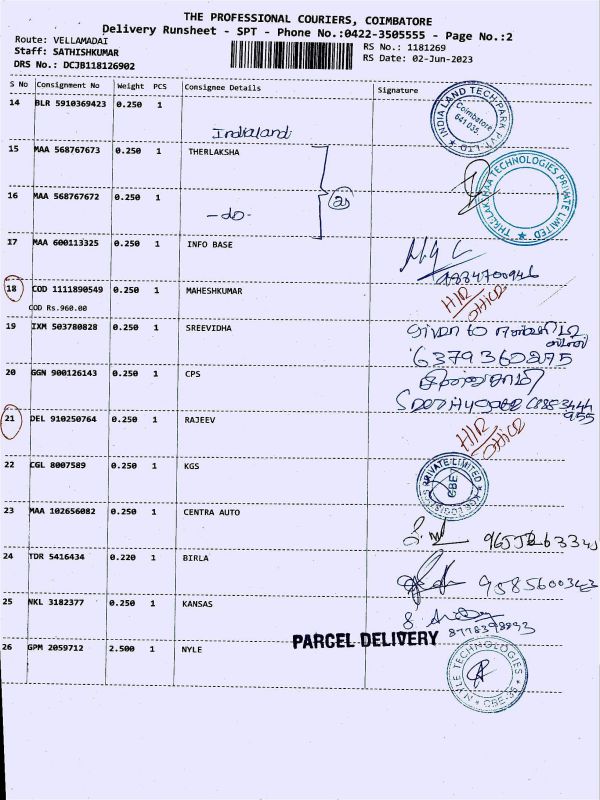 THE PROFESSIONAL COURIERS, COIMBATORE
Delivery Runsheet - SPT - Phone No.:0422-3505555 - Page No.:2
Route: VELLAMADAI
Staff: SATHISHKUMAR
DRS No.: DCJB118126902
RS No.: 1181269
RS Date: 02-Jun-2023
S No Consignment No Weight PCS Consignee Details Signature
14 BLR 5910369423 0.250 1
Indialand
INDIA LAND TECH PARK PVT. LTD Coimbatore 641 035
15 MAA 568767673 0.250 1 THERLAKSHA
THELLAKHAA TECHNOLOGIES PRIVATE LIMITED
16 MAA 568767672 0.250 1
-do-
17 MAA 600113325 0.250 1 INFO BASE
18 COD 1111890549 0.250 1 MAHESHKUMAR
COD Rs.960.00
H/R OFFICE
19 IXM 503780828 0.250 1 SREEVIDHA
Given to
6379360275
20 GGN 900126143 0.250 1 CPS
21 DEL 910250764 0.250 1 RAJEEV
H/R OFFICE
22 CGL 8007589 0.250 1 KGS
PRIVATE LIMITED CBE
23 MAA 102656082 0.250 1 CENTRA AUTO
24 TDR 5416434 0.220 1 BIRLA
9585600343
25 NKL 3182377 0.250 1 KANSAS
8778398893
PARCEL DELIVERY
26 GPM 2059712 2.500 1 NYLE
NYLE TECHNOLOGIES CBE-35